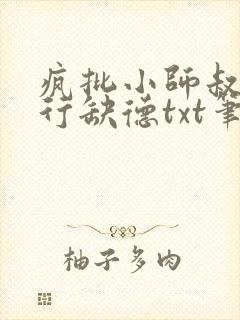 疯批小師叔
行缺德txt筆
柚子多肉